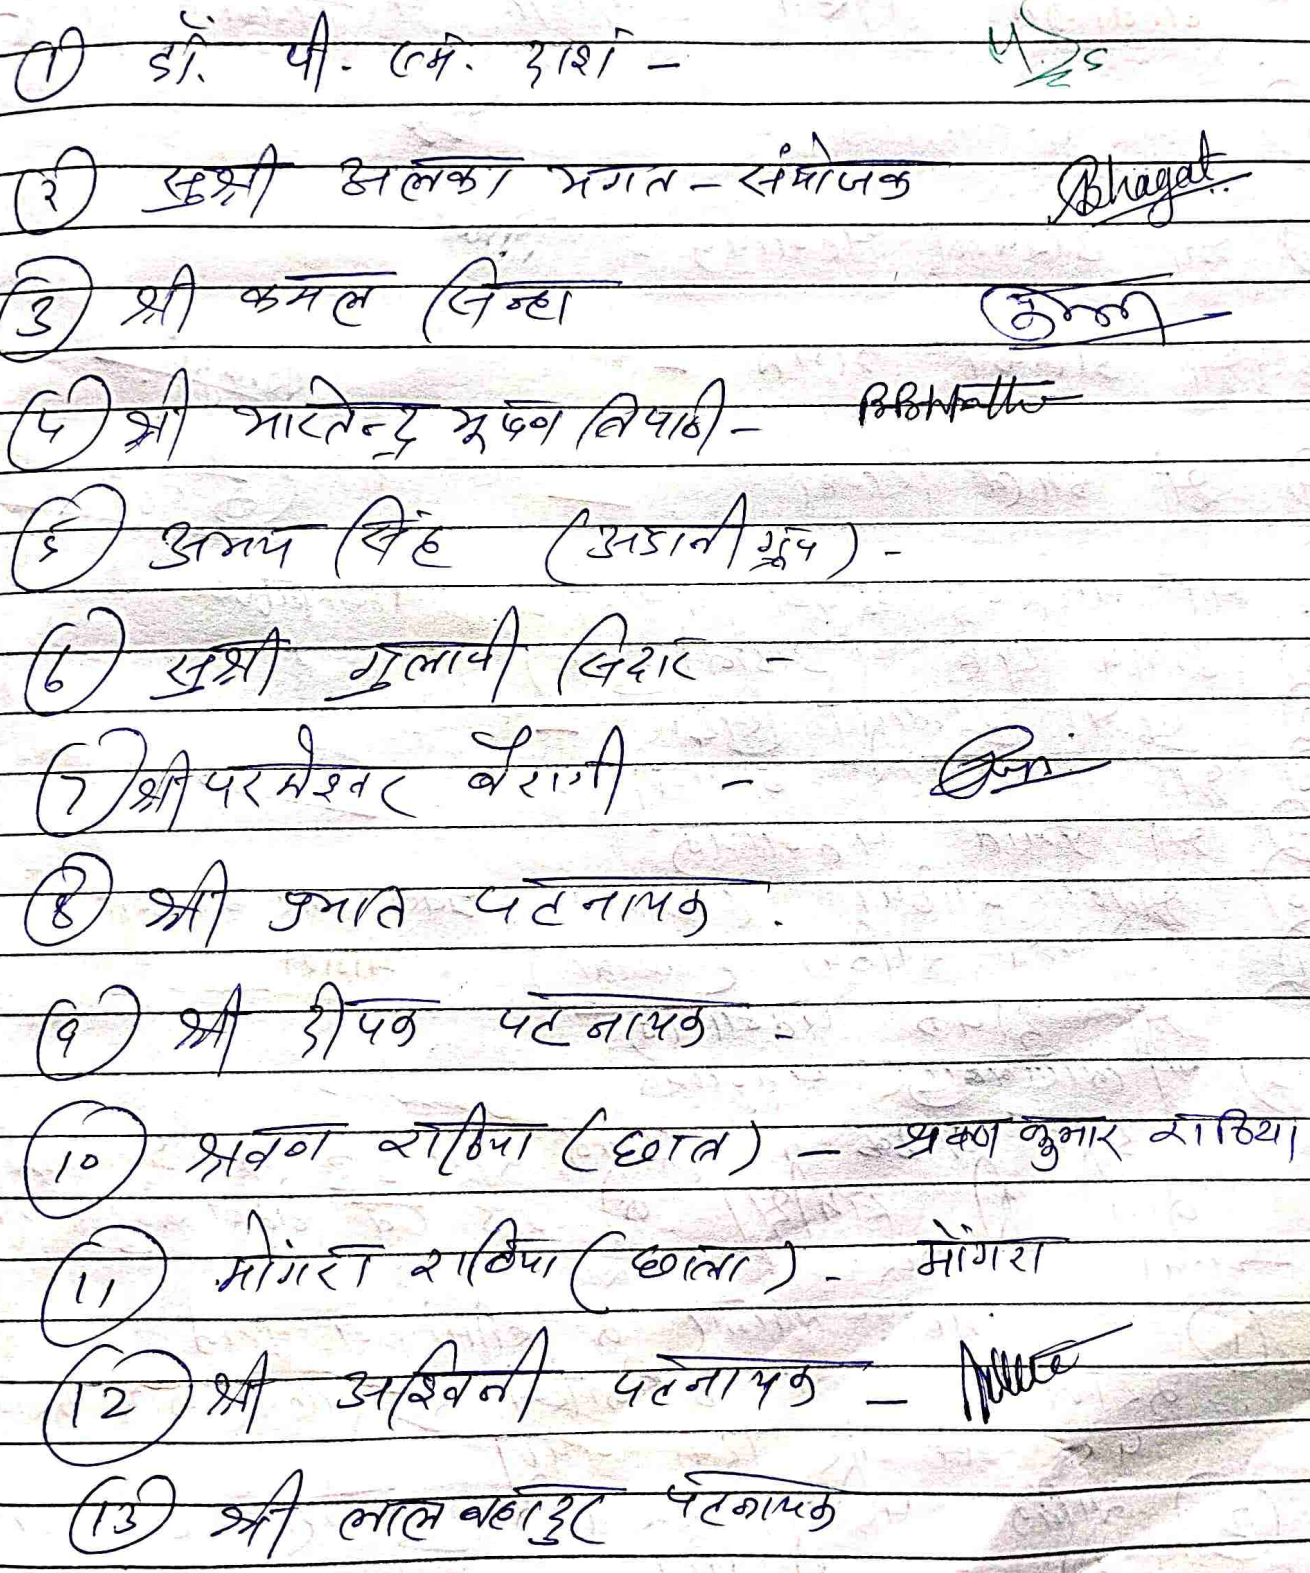 ① डॉ. पी. एम. दाश -
② सुश्री अलका भगत - संयोजक Bhagat
③ श्री कमल सिन्हा
④ श्री भारतेन्द्र भूषण त्रिपाठी -
⑤ अभय सिंह (अडानी ग्रूप) -
⑥ सुश्री गुलापी सिदार -
⑦ श्री परमेश्वर बैरागी -
⑧ श्री प्रभात पटनायक .
⑨ श्री दीपक पटनायक -
⑩ श्रवण राठिया (छात्र) - श्रवण कुमार राठिया
⑪ मोंगरा राठिया (छात्रा) - मोंगरा
⑫ श्री अश्विनी पटनायक -
⑬ श्री लाल बहादुर पटनायक